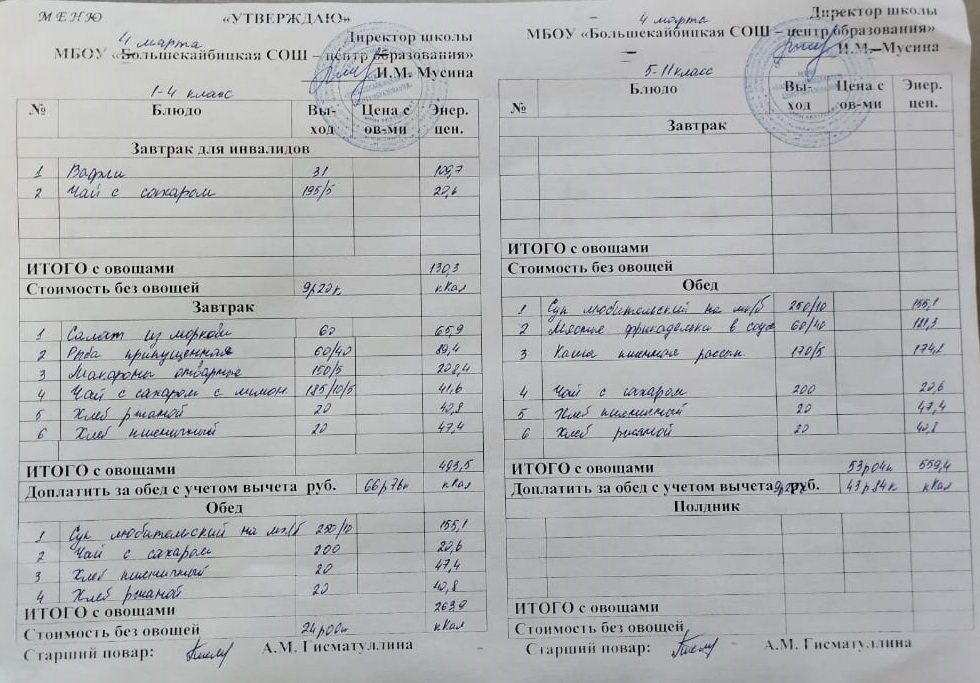 МЕНЮ «УТВЕРЖДАЮ»
Директор школы
4 марта
МБОУ «Большекайбицкая СОШ – центр образования»
И.М. Мусина
1-4 класс
№ Блюдо Вы-ход Цена с ов-ми Энер. цен.
Завтрак для инвалидов
1 Вафли 31 109,7
2 Чай с сахаром 195/5 20,6
ИТОГО с овощами 130,3
Стоимость без овощей 9р20к кКал
Завтрак
1 Салат из моркови 60 65,9
2 Рыба припущенная 60/40 89,4
3 Макароны отварные 150/5 208,4
4 Чай с сахаром с лимон. 185/10/5 41,6
5 Хлеб ржаной 20 40,8
6 Хлеб пшеничный 20 47,4
ИТОГО с овощами 493,5
Доплатить за обед с учетом вычета руб. 66р76к кКал
Обед
1 Суп любительский на мк/б 250/10 155,1
2 Чай с сахаром 200 20,6
3 Хлеб пшеничный 20 47,4
4 Хлеб ржаной 20 40,8
ИТОГО с овощами 263,9
Стоимость без овощей 24р00к кКал
Старший повар: А.М. Гисматуллина
4 марта
Директор школы
МБОУ «Большекайбицкая СОШ – центр образования»
И.М. Мусина
5-11 класс
№ Блюдо Вы-ход Цена с ов-ми Энер. цен.
Завтрак
ИТОГО с овощами
Стоимость без овощей
Обед
1 Суп любительский на мк/б 250/10 155,1
2 Мясные фрикадельки в соусе 60/40
3 Каша пшенная рассып. 170/5 174,2
4 Чай с сахаром 200 20,6
5 Хлеб пшеничный 20 47,4
6 Хлеб ржаной 20 40,8
ИТОГО с овощами 53р04к 559,4
Доплатить за обед с учетом вычета руб. 43р84к кКал
Полдник
ИТОГО с овощами
Стоимость без овощей
Старший повар: А.М. Гисматуллина